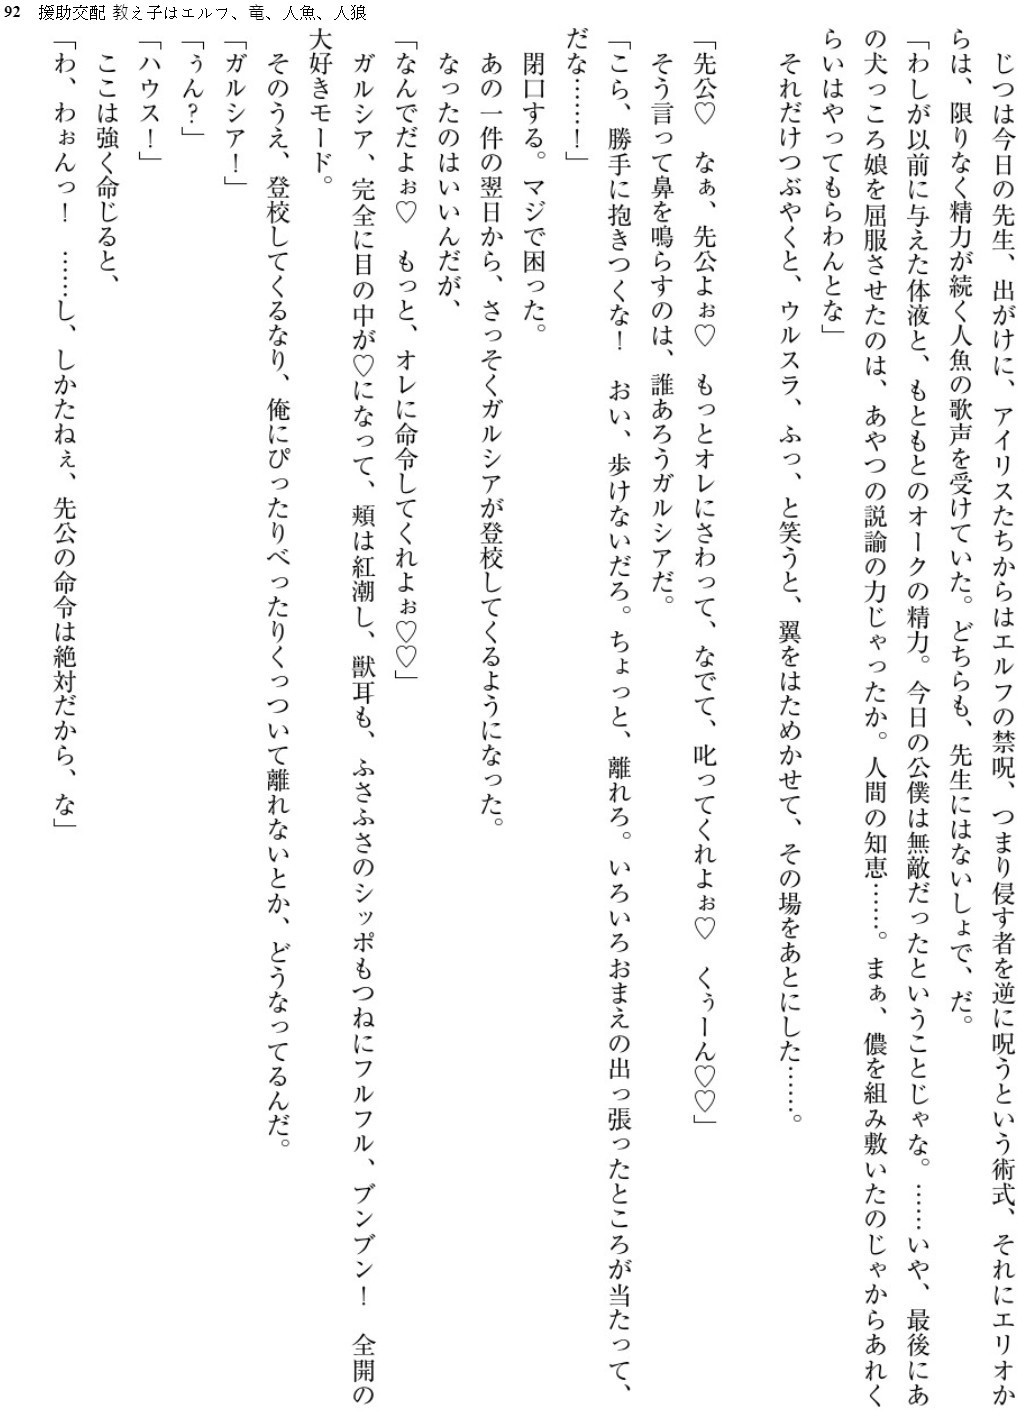 92 援助交配 教え子はエルフ、竜、人魚、人狼
じつは今日の先生、出がけに、アイリスたちからはエルフの禁呪、つまり侵す者を逆に呪うという術式、それにエリオか
らは、限りなく精力が続く人魚の歌声を受けていた。どちらも、先生にはないしょで、だ。
「わしが以前に与えた体液と、もともとのオークの精力。今日の公僕は無敵だったということじゃな。……いや、最後にあ
の犬っころ娘を屈服させたのは、あやつの説諭の力じゃったか。人間の知恵……。まぁ、儂を組み敷いたのじゃからあれく
らいはやってもらわんとな」
それだけつぶやくと、ウルスラ、ふっ、と笑うと、翼をはためかせて、その場をあとにした……。
「先公♡　なぁ、先公よぉ♡　もっとオレにさわって、なでて、叱ってくれよぉ♡　くぅーん♡♡」
そう言って鼻を鳴らすのは、誰あろうガルシアだ。
「こら、勝手に抱きつくな！　おい、歩けないだろ。ちょっと、離れろ。いろいろおまえの出っ張ったところが当たって、
だな……！」
閉口する。マジで困った。
あの一件の翌日から、さっそくガルシアが登校してくるようになった。
なったのはいいんだが、
「なんでだよぉ♡　もっと、オレに命令してくれよぉ♡♡」
ガルシア、完全に目の中が♡になって、頬は紅潮し、獣耳も、ふさふさのシッポもつねにフルフル、ブンブン！　全開の
大好きモード。
そのうえ、登校してくるなり、俺にぴったりべったりくっついて離れないとか、どうなってるんだ。
「ガルシア！」
「ぅん？」
「ハウス！」
ここは強く命じると、
「わ、わぉんっ！　……し、しかたねぇ、先公の命令は絶対だから、な」